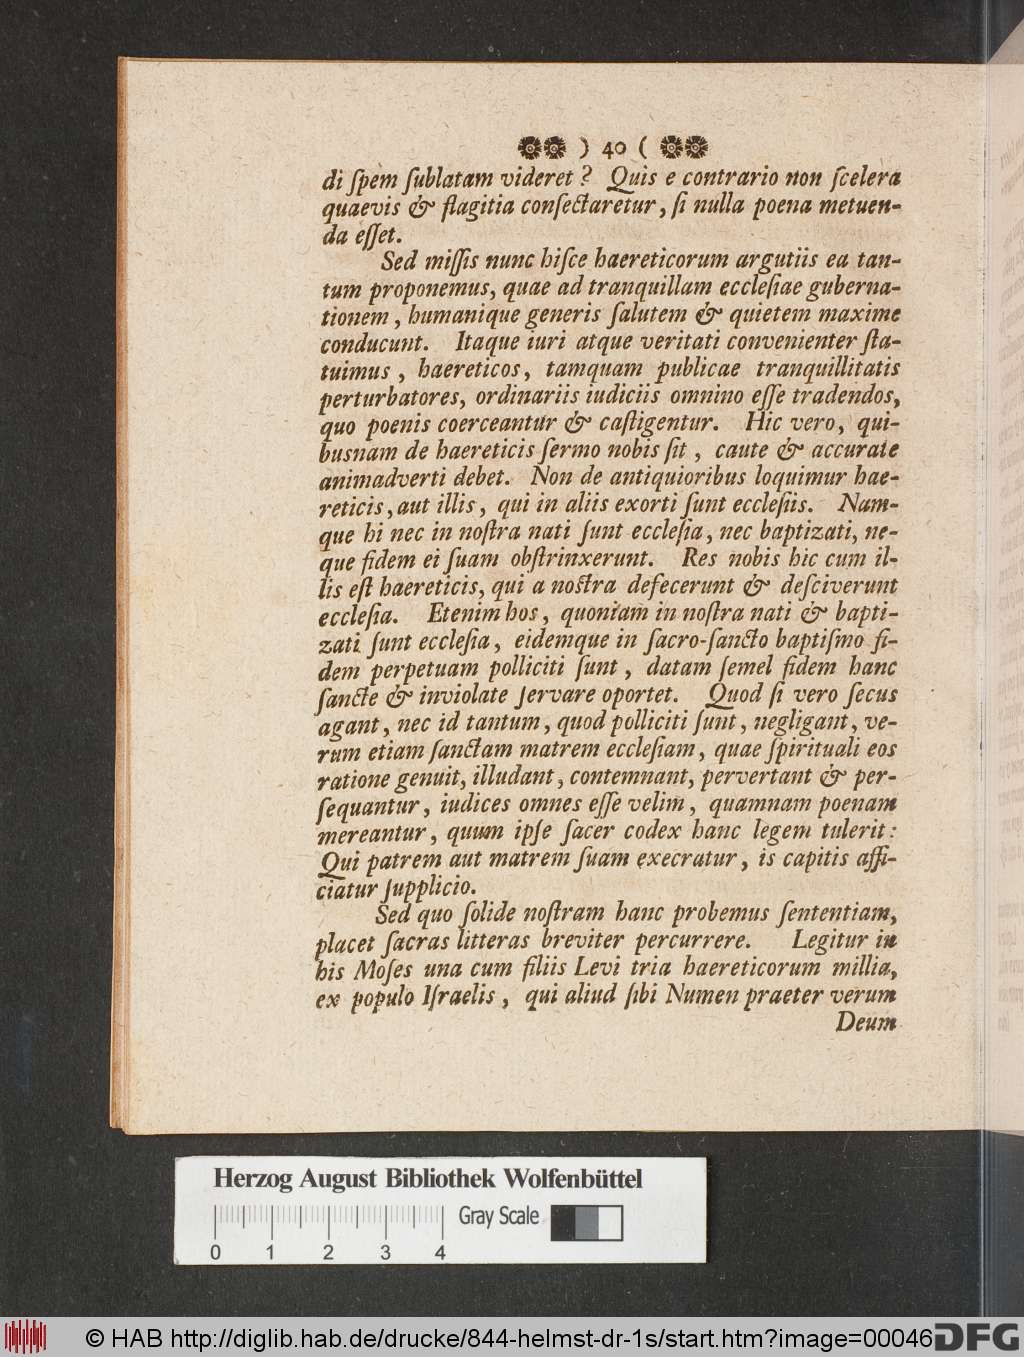 ) 40 (
di ſpem ſublatam videret? Quis e contrario non ſcelera
quaevis & flagitia conſectaretur, ſi nulla poena metuen-
da eſſet.
Sed miſſis nunc hiſce haereticorum argutiis ea tan-
tum proponemus, quae ad tranquillam eccleſiae guberna-
tionem, humanique generis ſalutem & quietem maxime
conducunt. Itaque iuri atque veritati convenienter ſta-
tuimus, haereticos, tamquam publicae tranquillitatis
perturbatores, ordinariis iudiciis omnino eſſe tradendos,
quo poenis coerceantur & caſtigentur. Hic vero, qui-
busnam de haereticis ſermo nobis ſit, caute & accurate
animadverti debet. Non de antiquioribus loquimur hae-
reticis, aut illis, qui in aliis exorti ſunt eccleſiis. Nam-
que hi nec in noſtra nati ſunt eccleſia, nec baptizati, ne-
que fidem ei ſuam obſtrinxerunt. Res nobis hic cum il-
lis eſt haereticis, qui a noſtra defecerunt & deſciverunt
eccleſia. Etenim hos, quoniam in noſtra nati & bapti-
zati ſunt eccleſia, eidemque in ſacro-ſancto baptiſmo fi-
dem perpetuam polliciti ſunt, datam ſemel fidem hanc
ſancte & inviolate ſervare oportet. Quod ſi vero ſecus
agant, nec id tantum, quod polliciti ſunt, negligant, ve-
rum etiam ſanctam matrem eccleſiam, quae ſpirituali eos
ratione genuit, illudant, contemnant, pervertant & per-
ſequantur, iudices omnes eſſe velim, quamnam poenam
mereantur, quum ipſe ſacer codex hanc legem tulerit:
Qui patrem aut matrem ſuam execratur, is capitis affi-
ciatur ſupplicio.
Sed quo ſolide noſtram hanc probemus ſententiam,
placet ſacras litteras breviter percurrere. Legitur in
his Moſes una cum filiis Levi tria haereticorum millia,
ex populo Iſraelis, qui aliud ſibi Numen praeter verum
Deum
Herzog August Bibliothek Wolfenbüttel
Gray Scale
0 1 2 3 4
© HAB http://diglib.hab.de/drucke/844-helmst-dr-1s/start.htm?image=00046
DFG